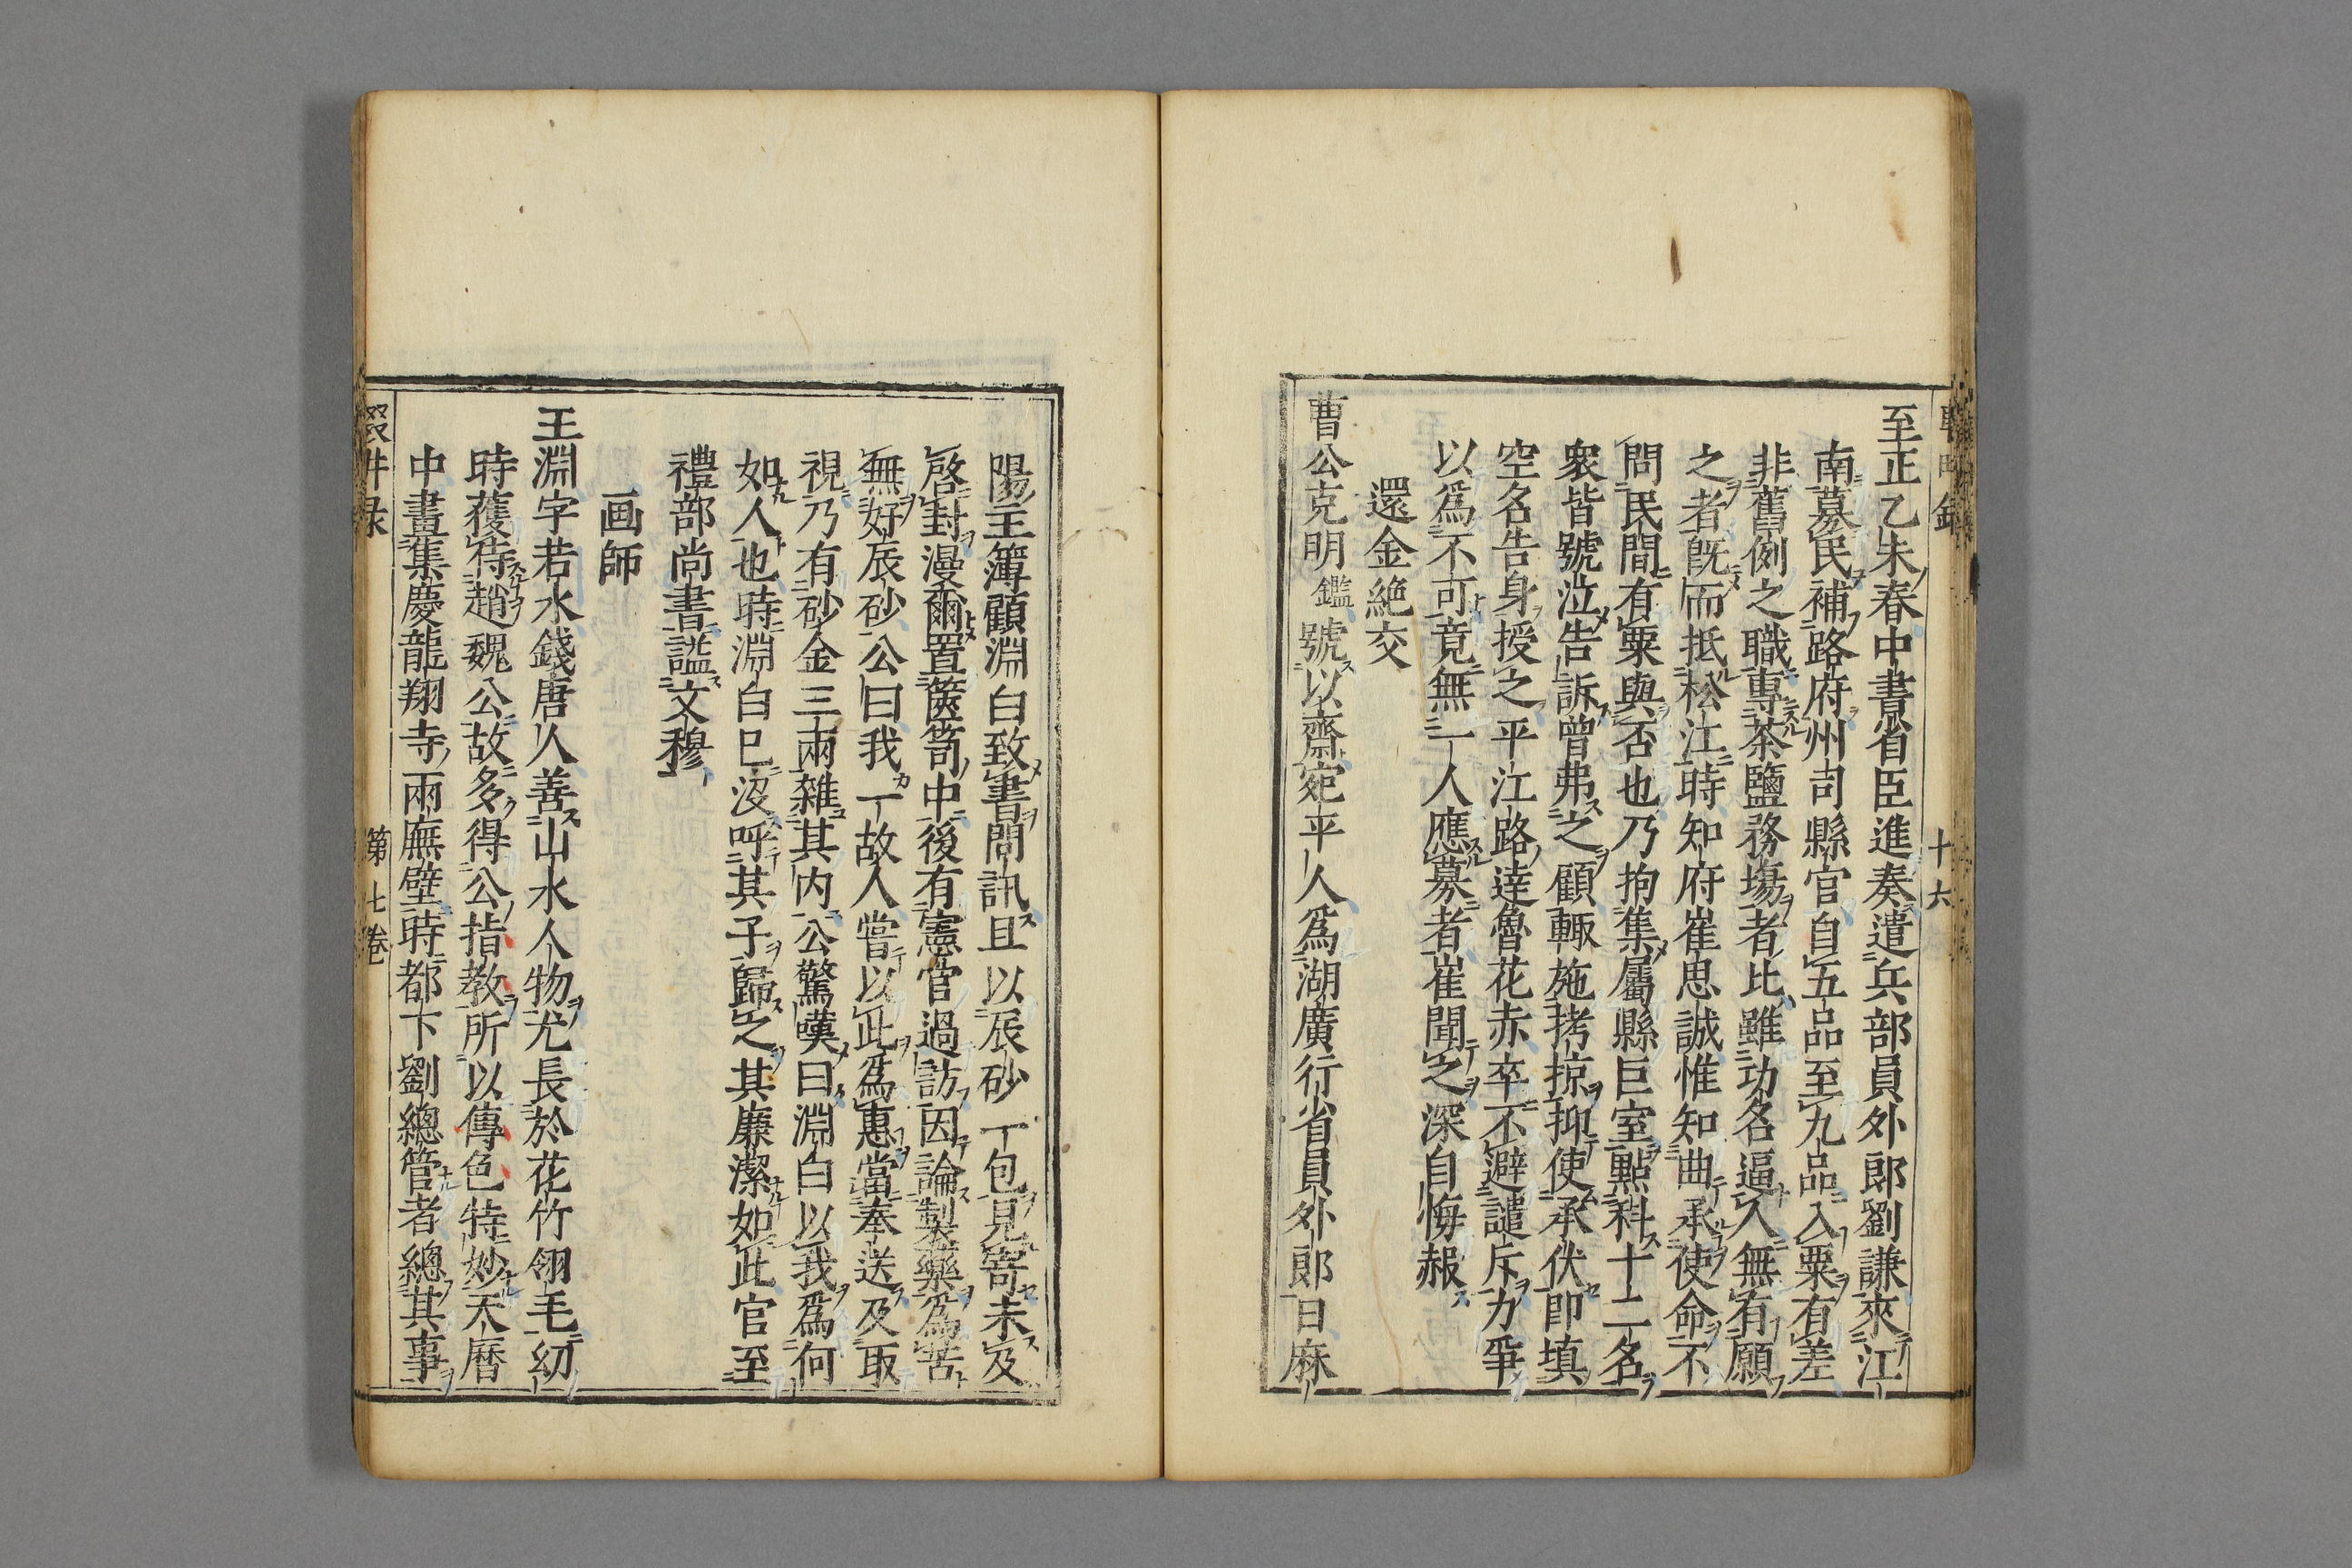 十六
至正乙未春中書省臣進奏遣兵部員外郎劉謙來江
南募民補路府州司縣官自五品至九品入粟有差
非舊例之職專茶鹽務塲者比雖功名逼人無有願
之者既而抵松江時知府崔思誠惟知曲承使命不
問民間有粟與否也乃拘集屬縣巨室點科十二名
衆皆號泣告訴曾弗之顧輒施拷掠抑使承伏即填
空名告身授之平江路達魯花赤卒不避譴斥力爭
以爲不可竟無一人應募者崔聞之深自悔赧
還金絶交
曹公克明鑑號以齋宛平人爲湖廣行省員外郎日麻
陽主簿顧淵白致書問訊且以辰砂一包見寄未及
啓封漫爾置篋笥中後有憲官過訪因論製藥爲苦
無好辰砂公曰我一故人嘗以此爲惠當奉送及取
視乃有砂金三兩雜其内公驚嘆曰淵白以我爲何
如人也時淵白已沒呼其子歸之其廉潔如此官至
禮部尚書謚文穆
画師
王淵字若水錢唐人善山水人物尤長於花竹翎毛幻
時獲侍趙魏公故多得公指教所以傳色特妙天曆
中畫集慶龍翔寺兩廡壁時都下劉總管者總其事
第七卷